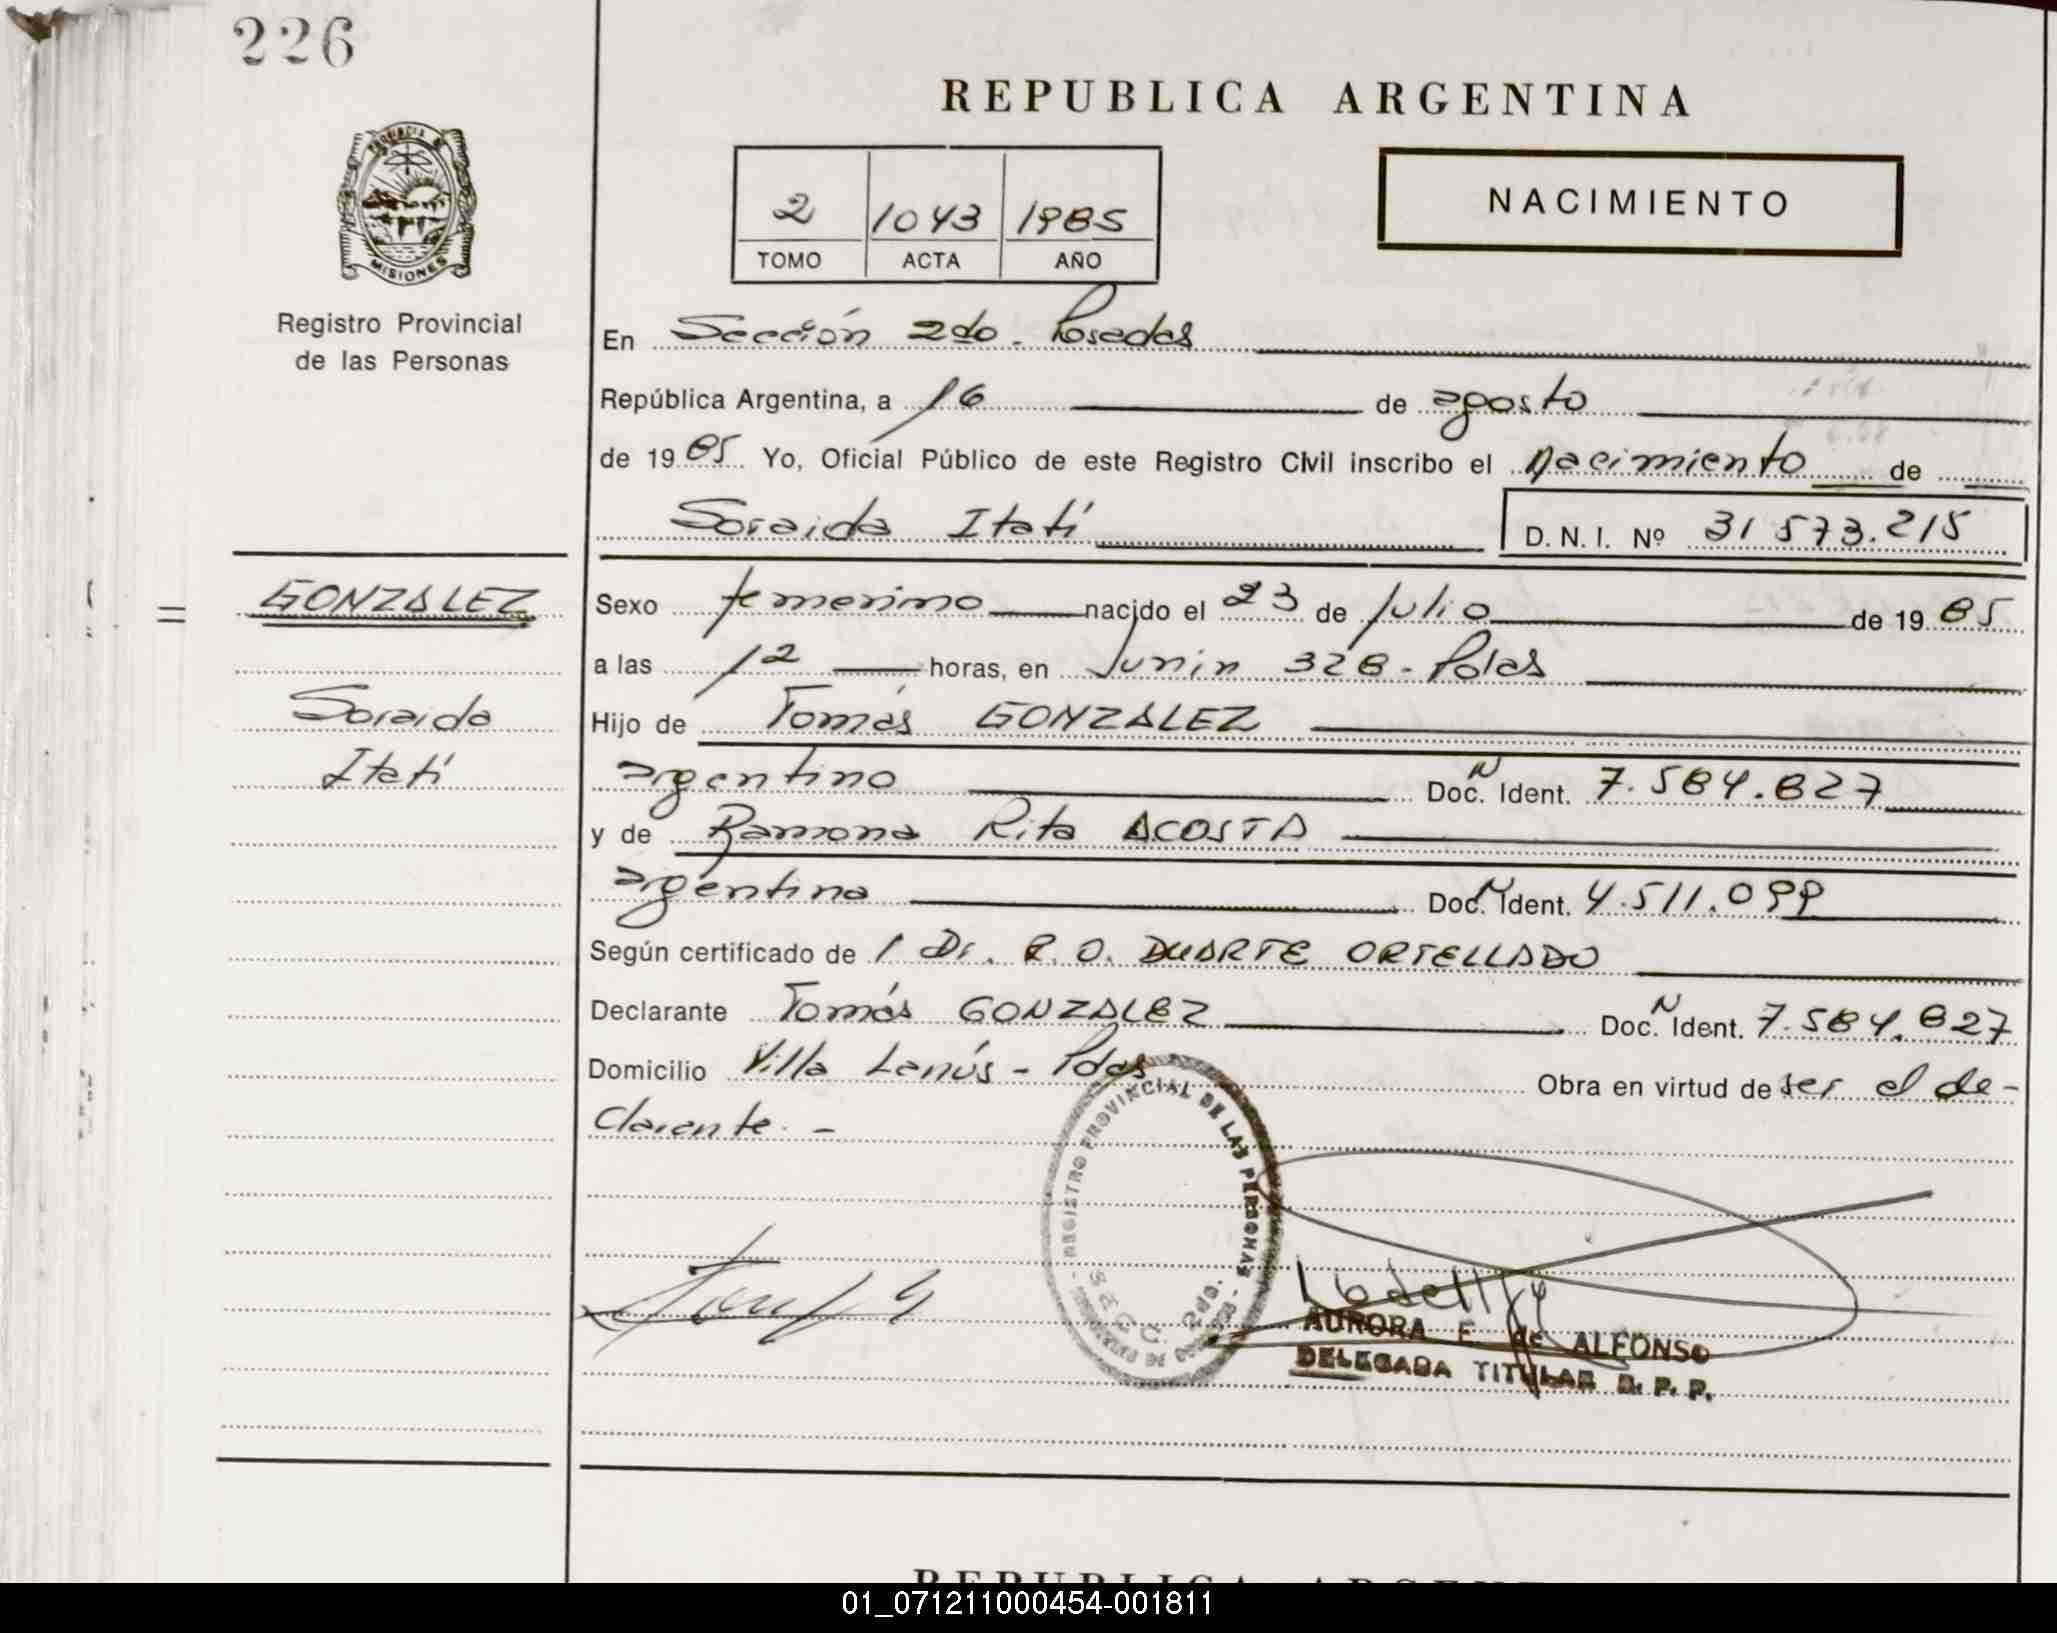 226
REPUBLICA ARGENTINA
PROVINCIA DE MISIONES
Registro Provincial
de las Personas
2 1043 1985
TOMO ACTA AÑO
NACIMIENTO
En Sección 2do - Posadas
República Argentina, a 16 de agosto
de 1985 Yo, Oficial Público de este Registro Civil inscribo el nacimiento de
Soraida Itatí D. N. I. Nº 31 573.215
GONZALEZ
Soraida
Itatí
Sexo femenino nacido el 23 de Julio de 1985
a las 12 horas, en Junin 328 - Pdas
Hijo de Tomás GONZALEZ
argentino Doc. N Ident. 7.584.827
y de Ramona Rita ACOSTA
argentina Doc. N Ident. 4.511.099
Según certificado de 1 Dr. R. O. DUARTE ORTELLADO
Declarante Tomás GONZALEZ Doc. N Ident. 7.584.827
Domicilio Villa Lanús - Pdas Obra en virtud de ser el de-
clarante. -
REGISTRO PROVINCIAL DE LAS PERSONAS
Secc. 2da.
AURORA F. de ALFONSO
DELEGADA TITULAR R. P. P.
REPUBLICA ARGENT
01_071211000454-001811